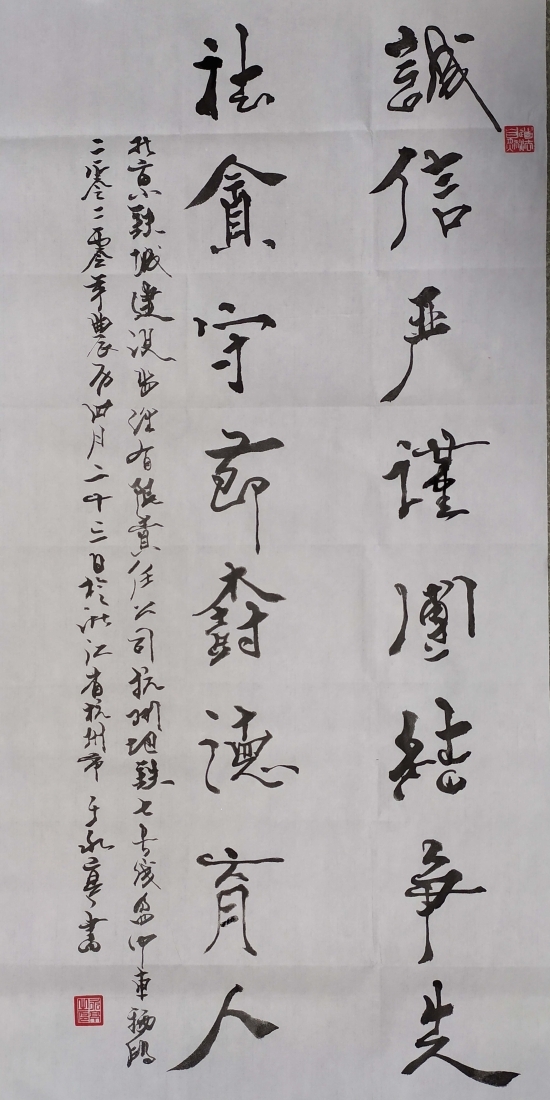 誠信严謹團結爭先
祛貪守節樹德育人
北京鉄城建設监理有限責任公司杭州地鉄七号线
二零二零年農历四月二十三日於浙江省杭州市于永亭書